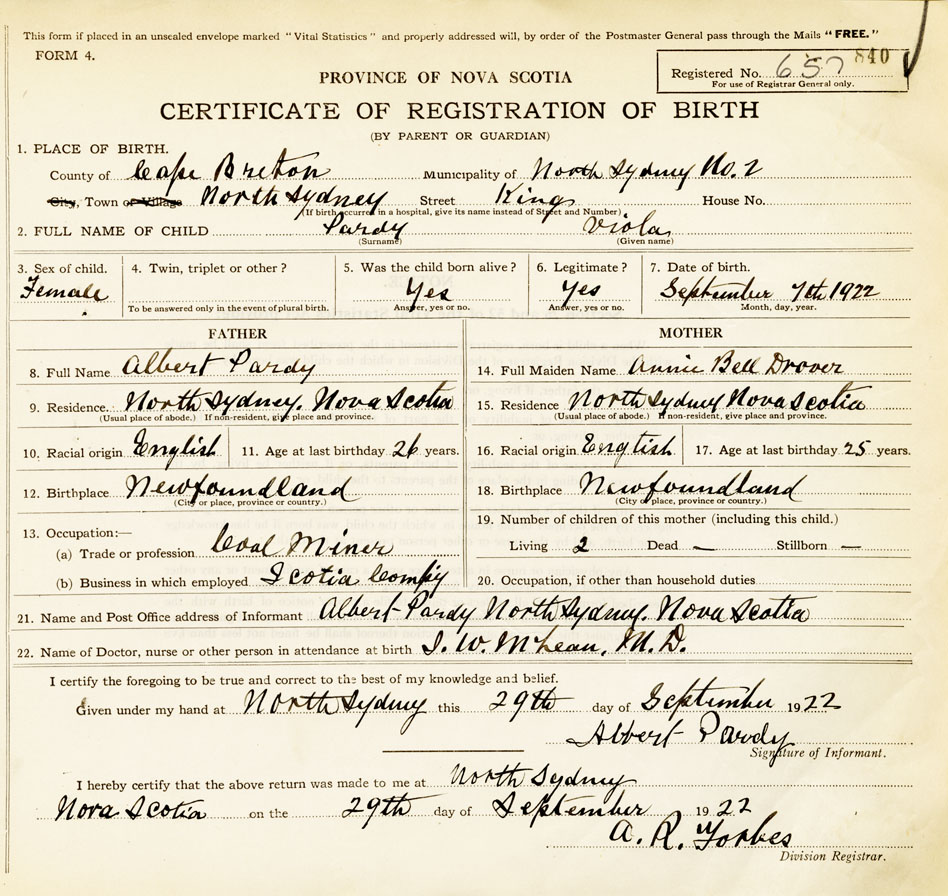 This form if placed in an unsealed envelope marked "Vital Statistics" and properly addressed will, by order of the Postmaster General pass through the Mails "FREE."
FORM 4.
840
Registered No. 657
For use of Registrar General only.
PROVINCE OF NOVA SCOTIA
CERTIFICATE OF REGISTRATION OF BIRTH
(BY PARENT OR GUARDIAN)
1. PLACE OF BIRTH.
County of Cape Breton Municipality of North Sydney No. 2
City, Town or Village North Sydney Street King House No.
(If birth occurred in a hospital, give its name instead of Street and Number)
2. FULL NAME OF CHILD Pardy Viola
(Surname) (Given name)
3. Sex of child. 4. Twin, triplet or other? 5. Was the child born alive? 6. Legitimate? 7. Date of birth.
Female Yes Yes September 7th 1922
To be answered only in the event of plural birth. Answer, yes or no. Answer, yes or no. Month, day, year.
FATHER MOTHER
8. Full Name Albert Pardy 14. Full Maiden Name Annie Bell Drover
9. Residence. North Sydney. Nova Scotia 15. Residence North Sydney Nova Scotia
(Usual place of abode.) If non-resident, give place and province. (Usual place of abode.) If non-resident, give place and province.
10. Racial origin English 11. Age at last birthday 26 years. 16. Racial origin English 17. Age at last birthday 25 years.
12. Birthplace Newfoundland 18. Birthplace Newfoundland
(City or place, province or country.) (City or place, province or country.)
13. Occupation:— 19. Number of children of this mother (including this child.)
(a) Trade or profession Coal Miner Living 2 Dead — Stillborn —
(b) Business in which employed Scotia Compy 20. Occupation, if other than household duties
21. Name and Post Office address of Informant Albert Pardy North Sydney. Nova Scotia
22. Name of Doctor, nurse or other person in attendance at birth J. W. McLean, M.D.
I certify the foregoing to be true and correct to the best of my knowledge and belief.
Given under my hand at North Sydney this 29th day of September 1922
Albert Pardy
Signature of Informant.
I hereby certify that the above return was made to me at North Sydney
Nova Scotia on the 29th day of September 1922
A. R. Forbes
Division Registrar.